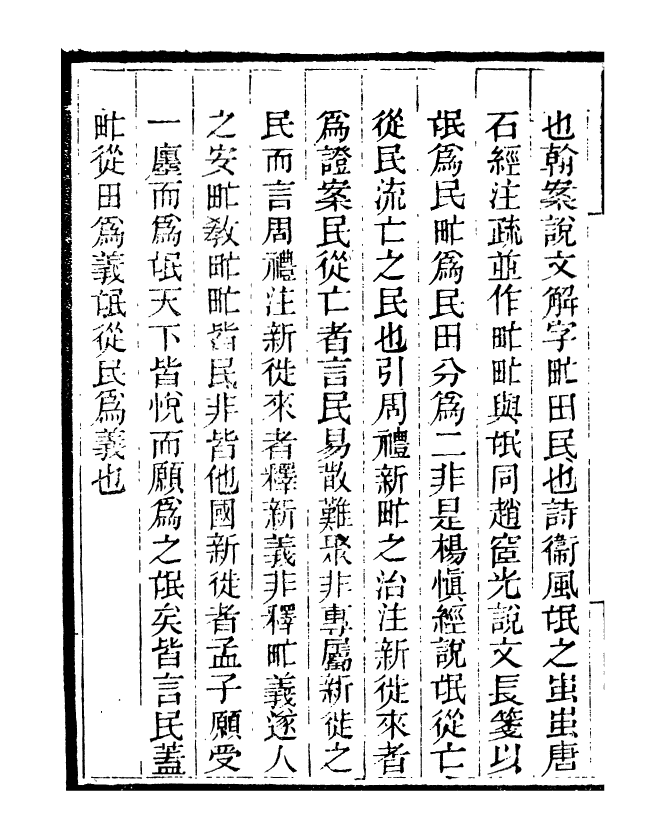 也翰案說文解字甿田民也詩衞風氓之蚩蚩唐
石經注疏並作甿甿與氓同趙宧光說文長箋以
氓爲民甿爲民田分爲二非是楊愼經說氓從亡
從民流亡之民也引周禮新甿之治注新徙來者
爲證案民從亡者言民易散難聚非專屬新徙之
民而言周禮注新徙來者釋新義非釋甿義遂人
之安甿敎甿甿皆民非皆他國新徙者孟子願受
一廛而爲氓天下皆悅而願爲之氓矣皆言民蓋
甿從田爲義氓從民爲義也